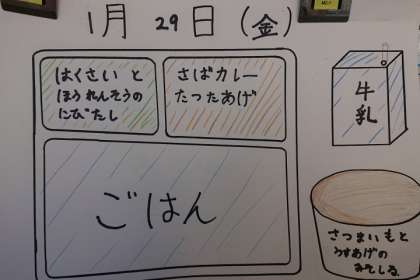 1月 29日(金)
はくさいと
ほうれんそうの
にびたし
さばカレー
たつたあげ
牛
乳
ごはん
さつまいもと
うすあげの
みそしる